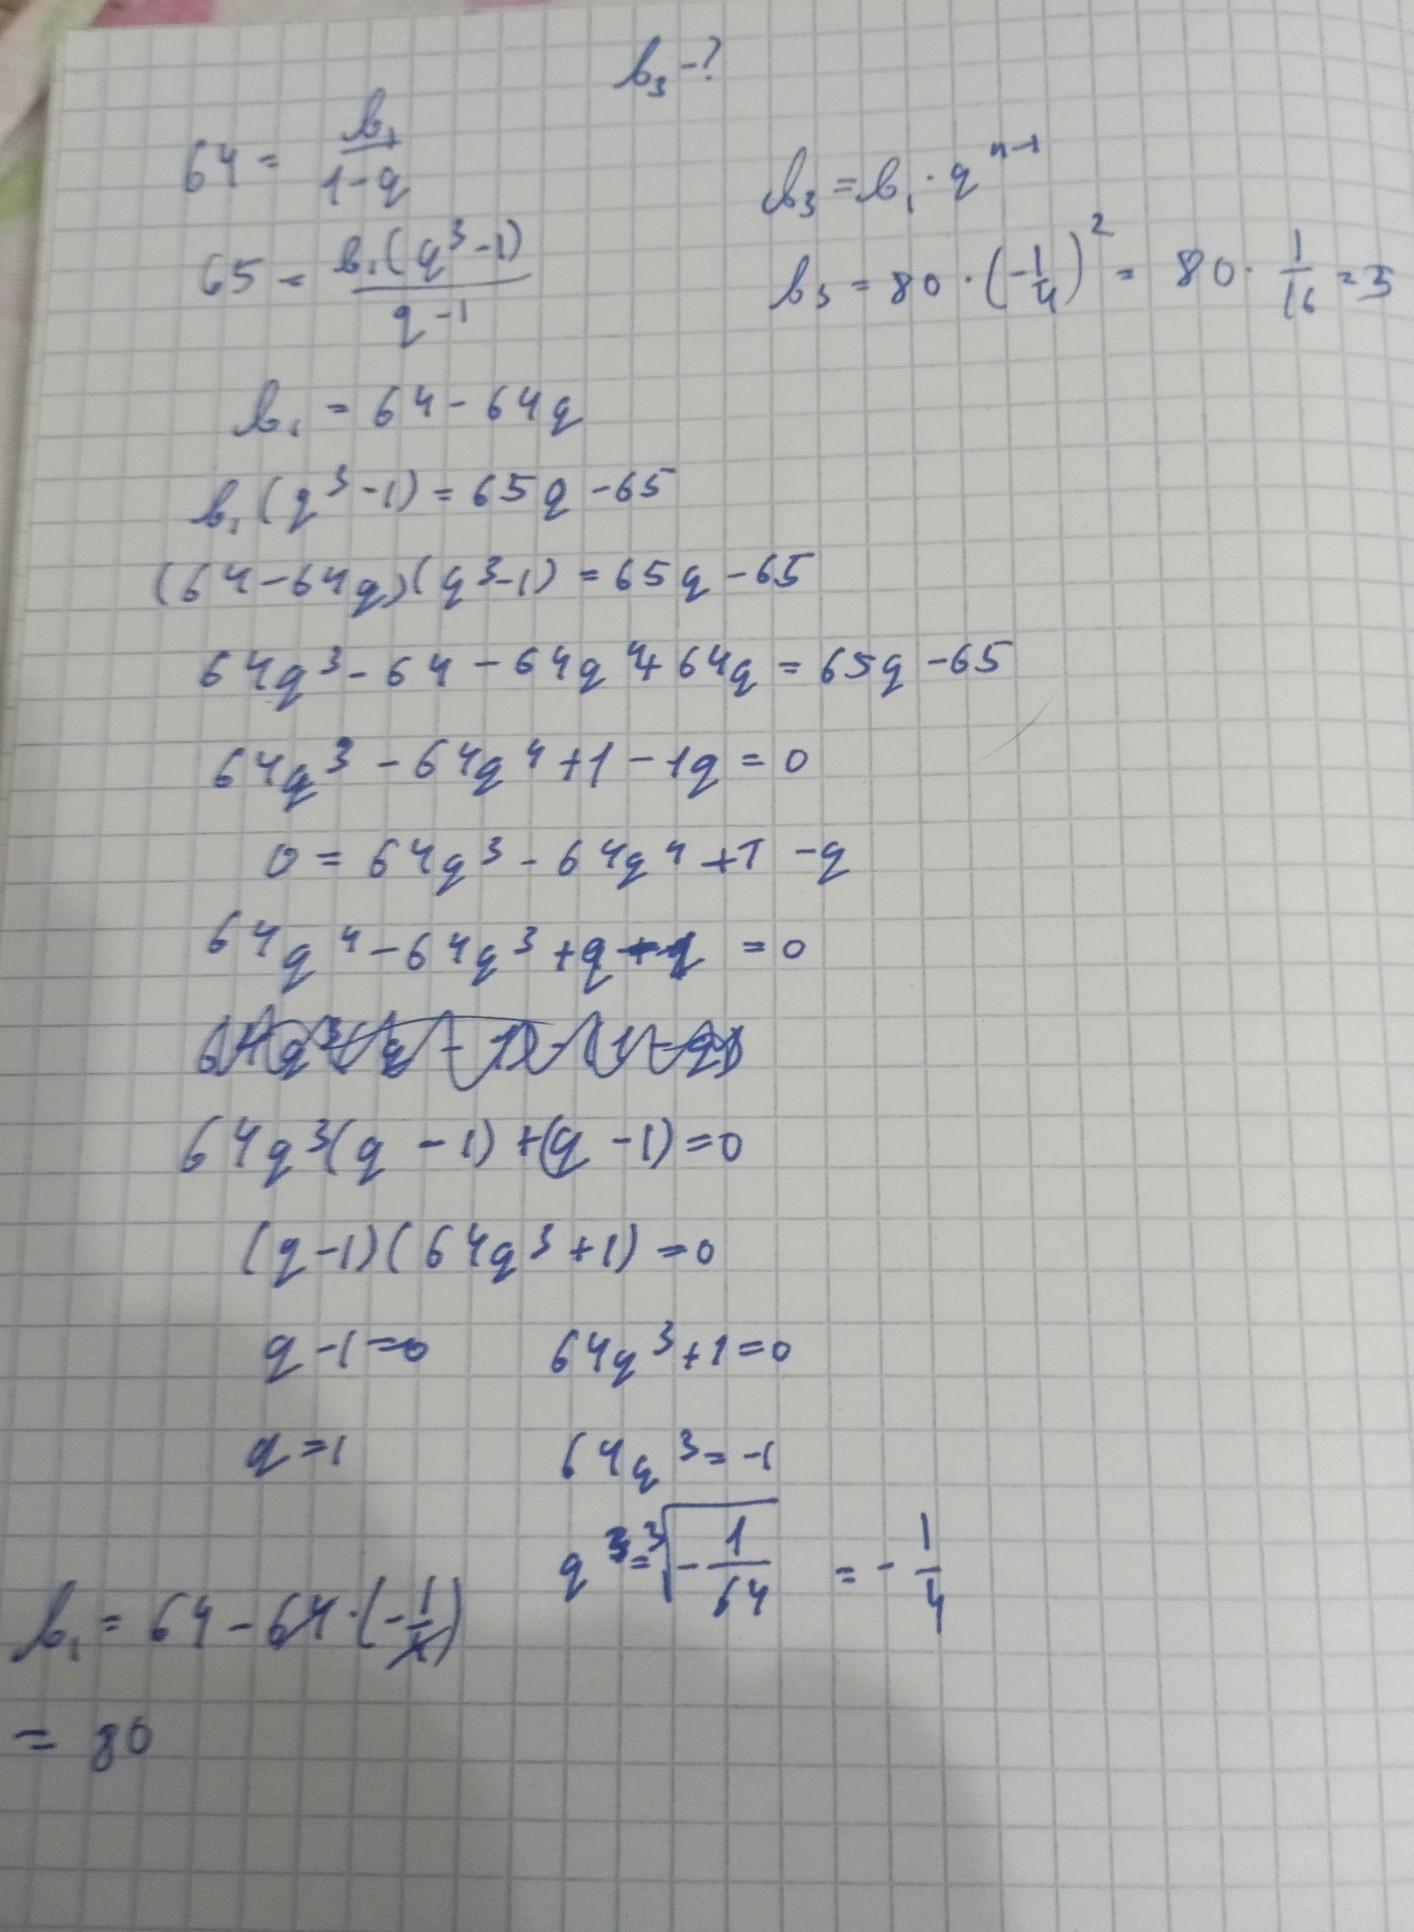 b₃ - ?
64 = b₁/(1-q)
65 = b₁(q³-1)/(q-1)
b₃ = b₁ · qⁿ⁻¹
b₃ = 80 · (-1/4)² = 80 · 1/16 = 5
b₁ = 64 - 64q
b₁(q³-1) = 65q - 65
(64-64q)(q³-1) = 65q - 65
64q³ - 64 - 64q⁴ + 64q = 65q - 65
64q³ - 64q⁴ + 1 - 1q = 0
0 = 64q³ - 64q⁴ + 1 - q
64q⁴ - 64q³ + q = 0
64q³(q - 1) + (q - 1) = 0
(q-1)(64q³+1) = 0
q - 1 = 0    64q³ + 1 = 0
q = 1    64q³ = -1
q = ³√(-1/64) = -1/4
b₁ = 64 - 64 · (-1/4)
= 80